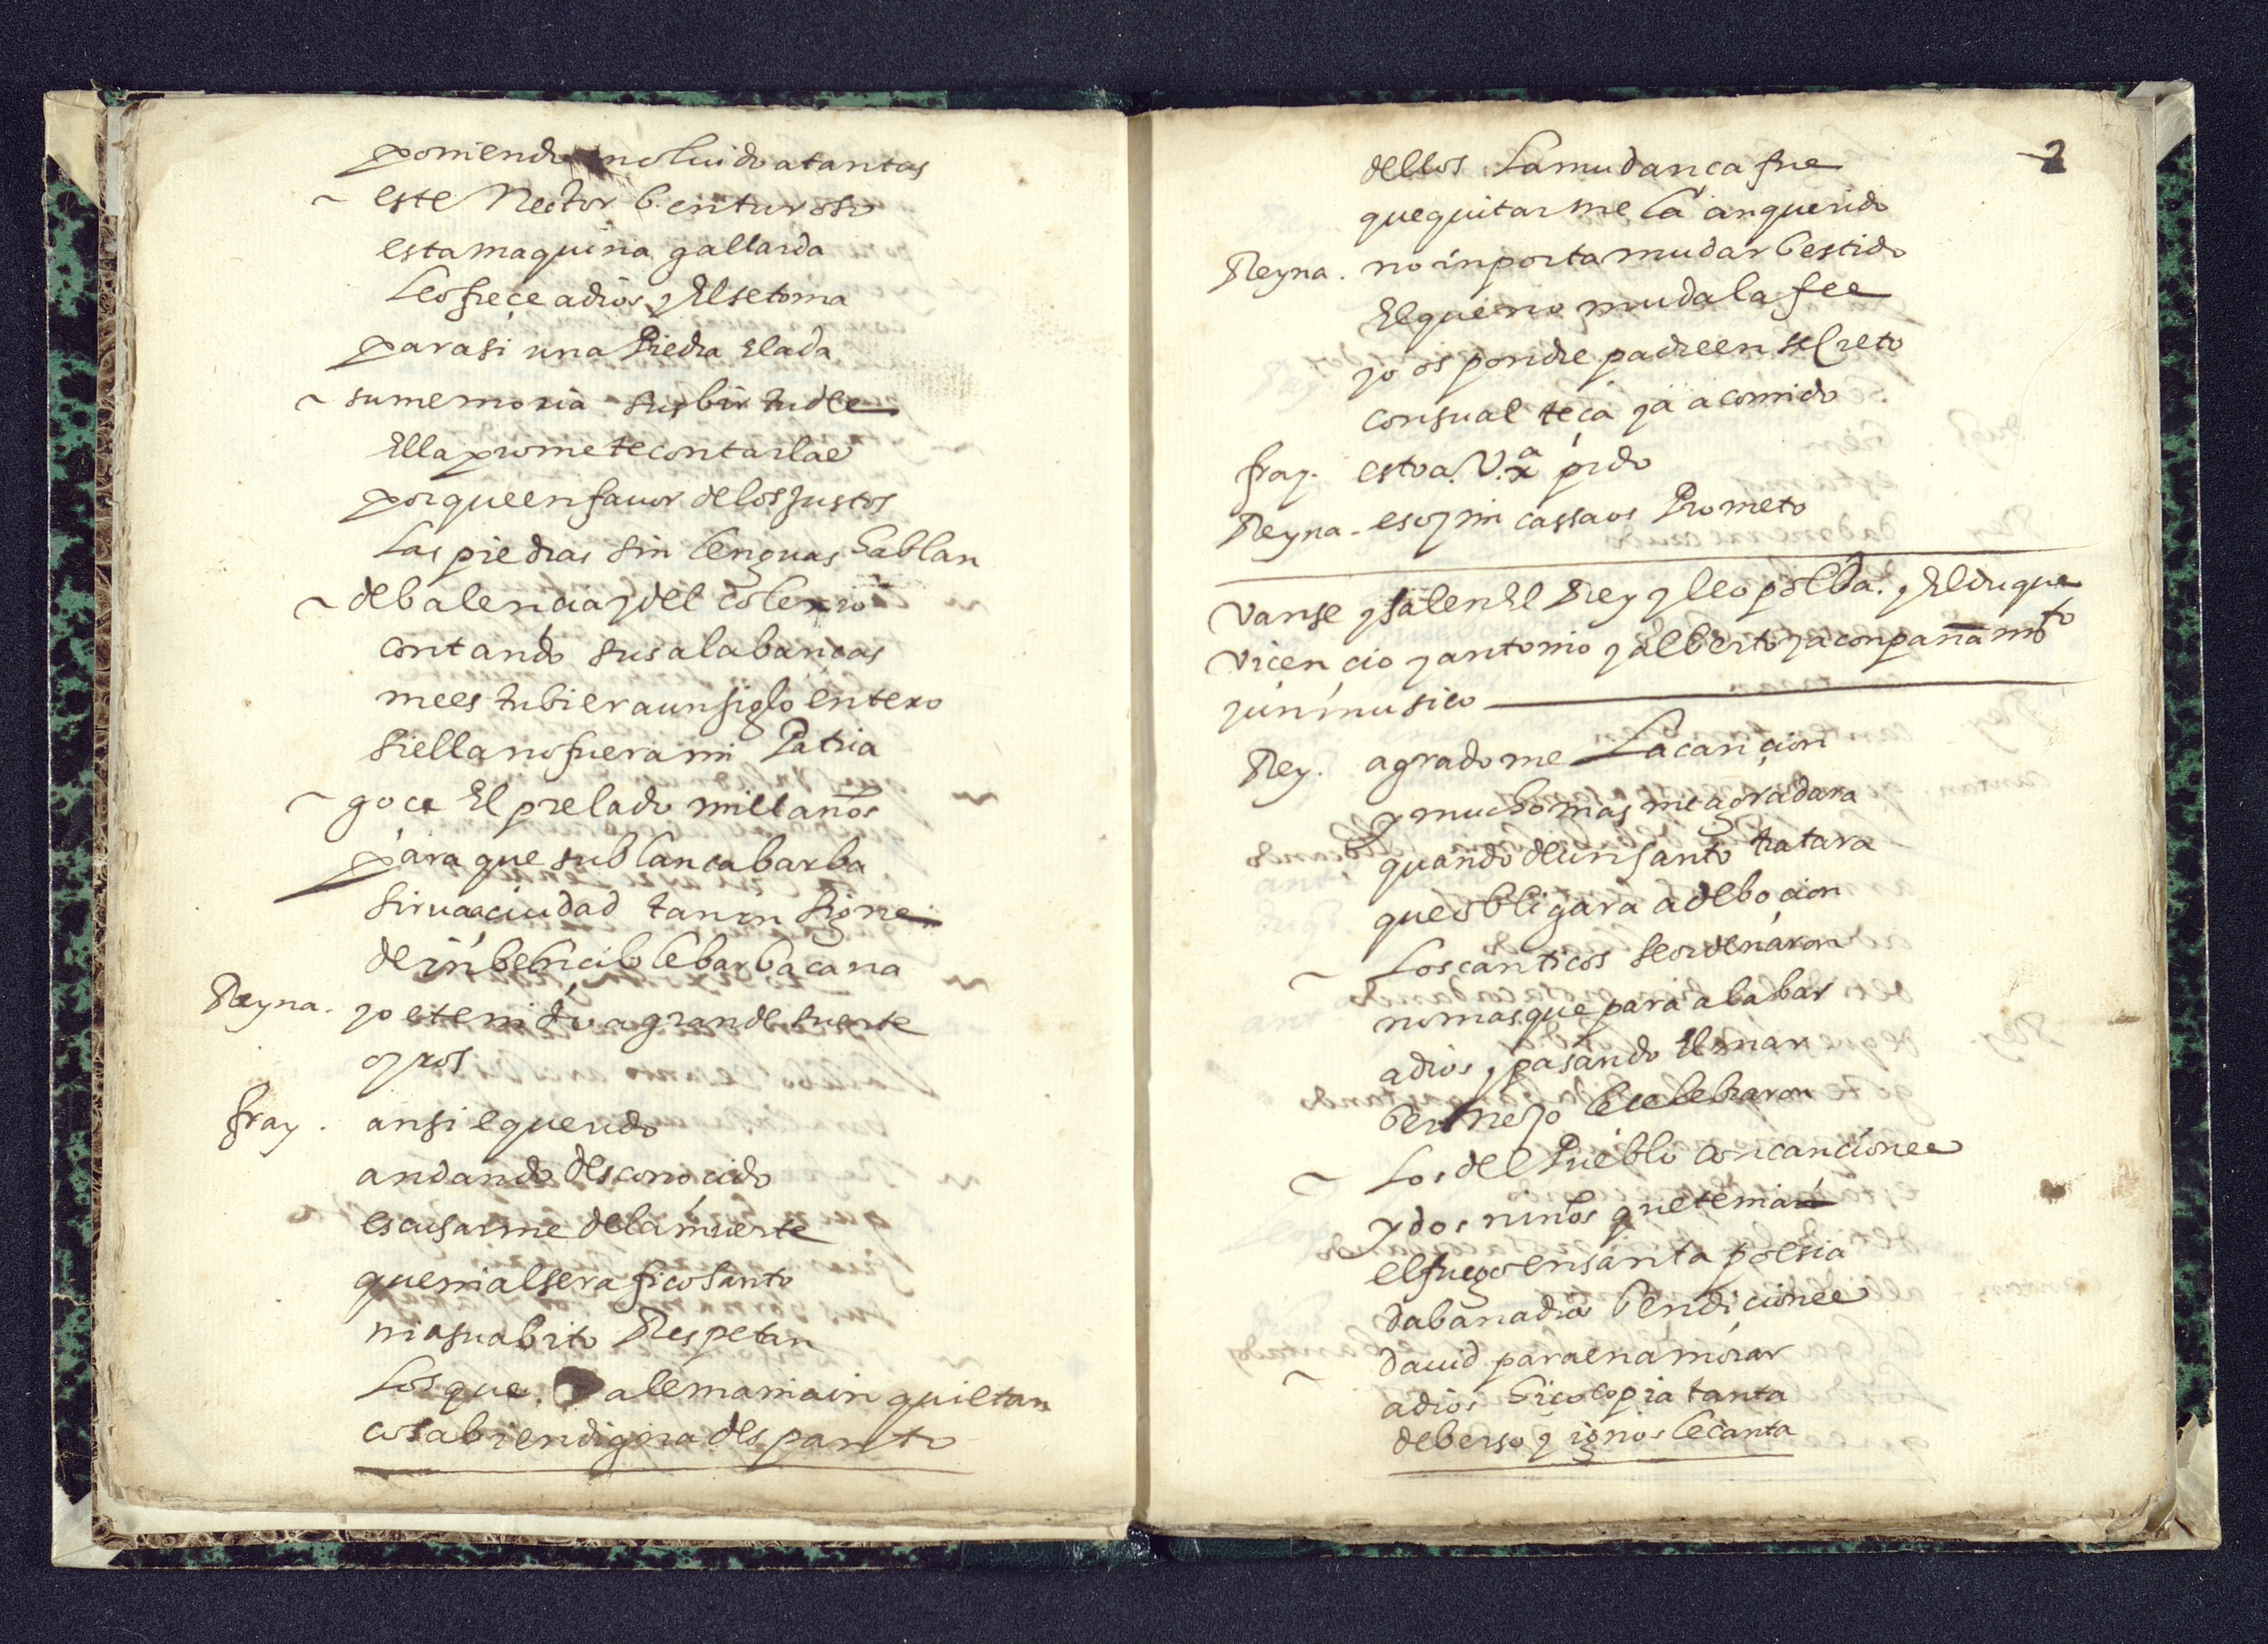 poniendo en oluido a tantas
~ este Nector benturoso
esta maquina gallarda
le ofreçe a dios y El se toma
para si una Piedra Elada
~ su memoria sus birtudes
Ella promete contarlas
porque en fauor de los justos
las piedras sin lenguas hablan
~ de balencia y del colexio
contando sus alabanças
me estubiera un siglo entero
si ella no fuera mi Patria
~ goce El prelado mill años
para que su blanca barba
sirua a ciudad tan insigne
de inbencible barbacana
Reyna. yo e tenido a grande suerte
oyros
fray. ansi e querido
andando desconocido
escusarme de la muerte
que ni al serafico santo
ni a su abito Respetan
los que alemania inquietan
cosa bien digna despanto
2
dellos la mudança fue
que quitarmela an querido
Reyna. no inporta mudar bestido
El que no muda la fee
yo os pondre padre en secreto
con su alteça ya a comido
fray. esto a V.ª pido
Reyna - eso y mi cassa os Prometo
Vanse y salen El Rey y leopolda. y El duque
Vicencio y antonio y alberto y aconpañamto
y un musico
Rey. agradome la cançion
y mucho mas me agradara
quando de un santo tratara
que obligara a debocion
~ los canticos se ordenaron
no mas que para alabar
a dios y pasando El mar
bermejo le celebraron
~ los del Pueblo con canciones
y dos niños que tenian
el fuego en santa poesia
daban a dios bendiciones
~ dauid para enamorar
a dios hico copia tanta
de berso y ignos le canta